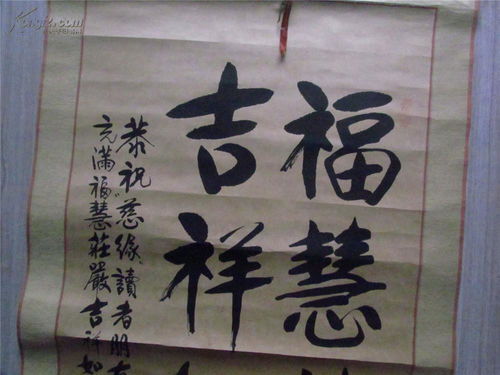 福慧
吉祥
恭祝慈缘讀者朋友
充滿福慧莊嚴吉祥如